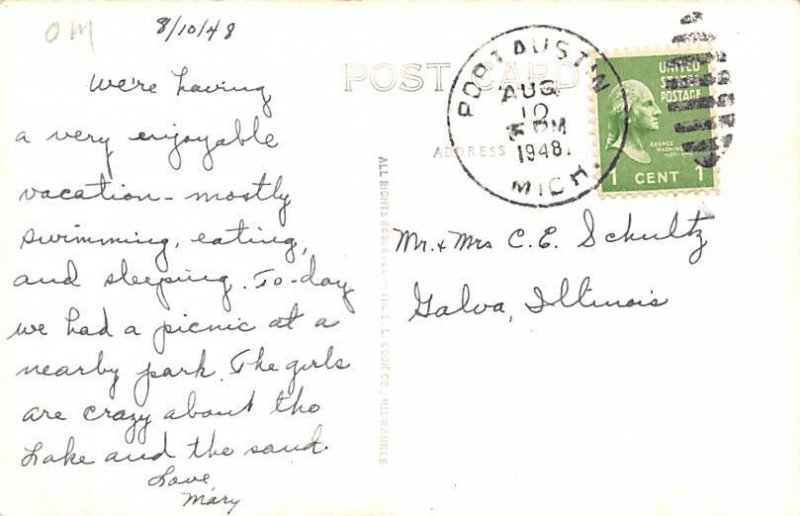 OM
8/10/48
We're having
a very enjoyable
vacation - mostly
swimming, eating,
and sleeping. To-day
we had a picnic at a
nearby park. The girls
are crazy about the
Lake and the sand.
Love
Mary
POST CARD
ADDRESS
PORT AUSTIN
AUG
10
PM
1948
MICH.
UNITED
STATES
POSTAGE
GEORGE
1 CENT 1
Mr. & Mrs C. E. Schultz
Galva, Illinois
ALL RIGHTS RESERVED - THE L. L. COOK CO., MILWAUKEE